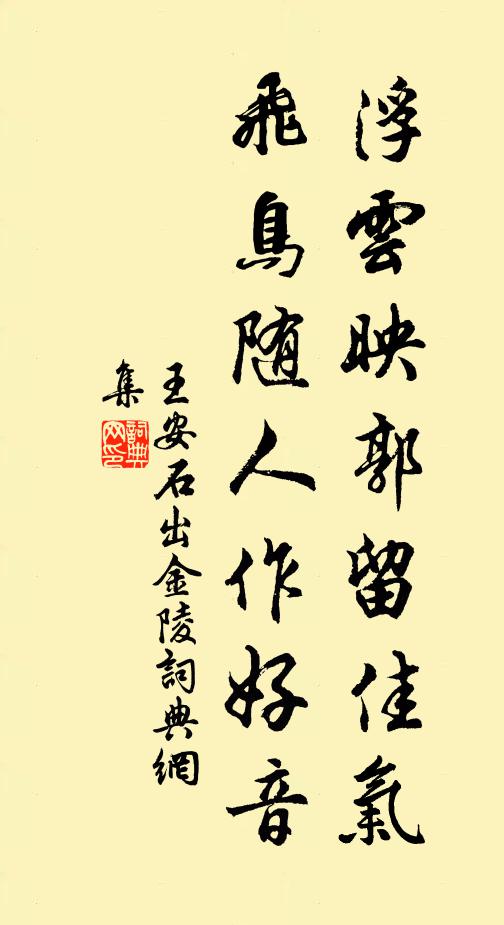 浮雲映郭留佳氣
飛鳥随人作好音
王安石出金陵詞典網
集
詞典网印